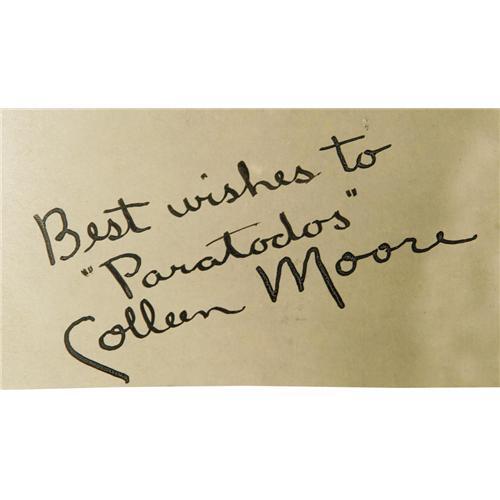 Best wishes to
"Paratodos"
Colleen Moore